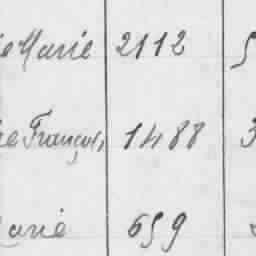 Marie 2112 5
François, 1488 3
Marie 659